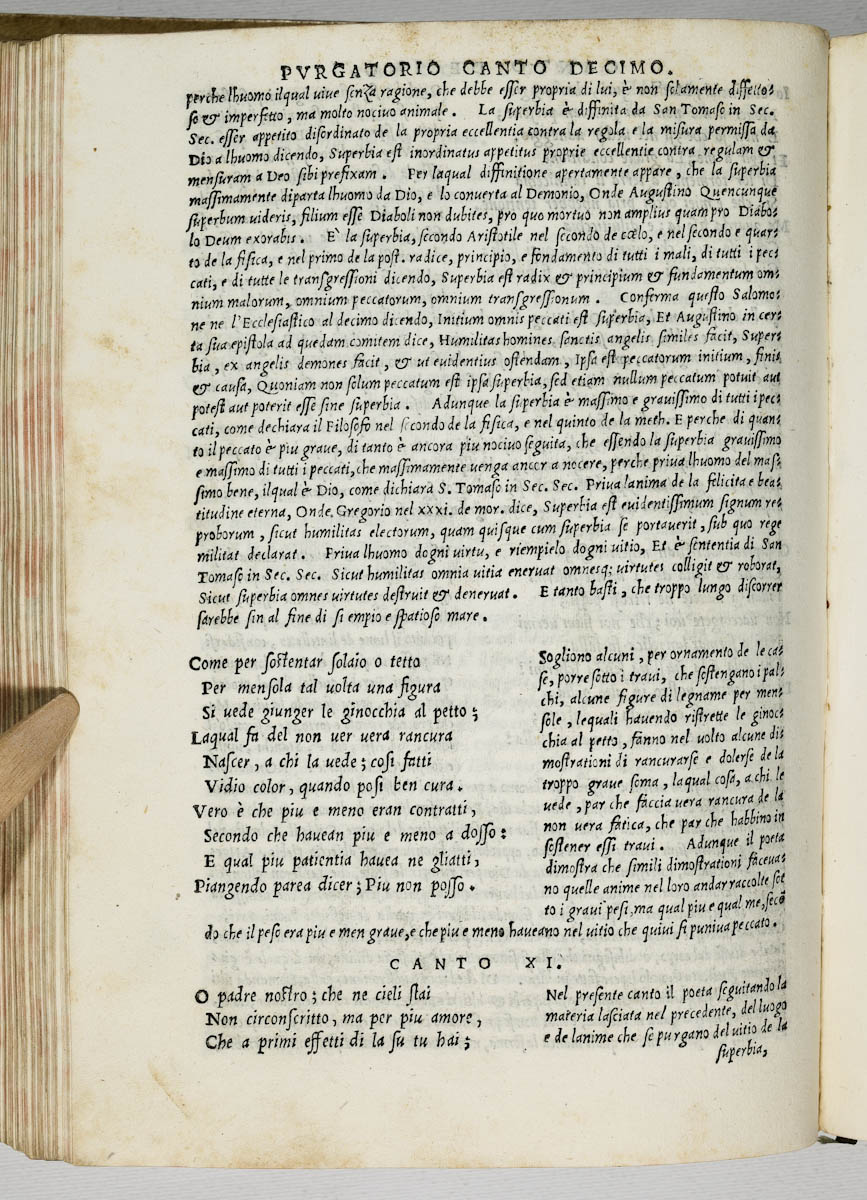 PVRGATORIO CANTO DECIMO.
perche lhuomo ilqual uiue senza ragione, che debbe esser propria di lui, è non solamente diffetto-
so & imperfetto, ma molto nociuo animale. La superbia è diffinita da San Tomaso in Sec.
Sec. esser appetito disordinato de la propria eccellentia contra la regola e la misura permissa da
Dio a lhuomo dicendo, Superbia est inordinatus appetitus proprie eccellentie contra regulam &
mensuram a Deo sibi prefixam. Per laqual diffinitione apertamente appare, che la superbia
massimamente diparta lhuomo da Dio, e lo conuerta al Demonio, Onde Augustino Quencunque
superbum uideris, filium esse Diaboli non dubites, pro quo mortuo non amplius quam pro Diabo-
lo Deum exorabis. E` la superbia, secondo Aristotile nel secondo de cœlo, e nel secondo e quar-
to de la fisica, e nel primo de la post. radice, principio, e fondamento di tutti i mali, di tutti i pec-
cati, e di tutte le transgressioni dicendo, Superbia est radix & principium & fundamentum om-
nium malorum, omnium peccatorum, omnium transgressionum. Conferma questo Salomo-
ne ne l'Ecclesiastico al decimo dicendo, Initium omnis peccati est superbia, Et Augustino in cer-
ta sua epistola ad quedam comitem dice, Humilitas homines sanctis angelis similes facit, Super-
bia, ex angelis demones facit, & ut euidentius ostendam, Ipsa est peccatorum initium, finis
& causa, Quoniam non solum peccatum est ipsa superbia, sed etiam nullum peccatum potuit aut
potest aut poterit esse sine superbia. Adunque la superbia è massimo e grauissimo di tutti i pec-
cati, come dechiara il Filosofo nel secondo de la fisica, e nel quinto de la meth. E perche di quan-
to il peccato è piu graue, di tanto è ancora piu nociuo seguita, che essendo la superbia grauissimo
e massimo di tutti i peccati, che massimamente uenga ancor a nocere, perche priua lhuomo del mas-
simo bene, ilqual è Dio, come dichiara S. Tomaso in Sec. Sec. Priua lanima de la felicita e bea-
titudine eterna, Onde Gregorio nel xxxi. de mor. dice, Superbia est euidentissimum signum re-
proborum, sicut humilitas electorum, quam quisque cum superbia se portauerit, sub quo rege
militat declarat. Priua lhuomo dogni uirtu, e riempielo dogni uitio, Et è sententia di San
Tomaso in Sec. Sec. Sicut humilitas omnia uitia eneruat omnesq; uirtutes colligit & roborat,
Sicut superbia omnes uirtutes destruit & deneruat. E tanto basti, che troppo lungo discorrer
sarebbe sin al fine di si empio e spatioso mare.
Come per sostentar solaio o tetto
Per mensola tal uolta una figura
Si uede giunger le ginocchia al petto;
Laqual fa del non uer uera rancura
Nascer, a chi la uede; cosi fatti
Vidio color, quando posi ben cura.
Vero è che piu e meno eran contratti,
Secondo che hauean piu e meno a dosso:
E qual piu patientia hauea ne gliatti,
Piangendo parea dicer; Piu non posso.
Sogliono alcuni, per ornamento de le ca-
se, porre sotto i traui, che sostengano i pal-
chi, alcune figure di legname per men-
sole, lequali hauendo ristrette le ginoc-
chia al petto, fanno nel uolto alcune di-
mostrationi di rancurarse e dolerse de la
troppo graue soma, laqual cosa, a chi le
uede, par che faccia uera rancura de la
non uera fatica, che par che habbino in
sostener essi traui. Adunque il poeta
dimostra che simili dimostrationi faceua-
no quelle anime nel loro andar raccolte sot
to i graui pesi, ma qual piu e qual me, secō
do che il peso era piu e men graue, e che piu e meno haueano nel uitio che quiui si puniua peccato.
CANTO XI.
O padre nostro; che ne cieli stai
Non circonscritto, ma per piu amore,
Che a primi effetti di la su tu hai;
Nel presente canto il poeta seguitando la
materia lasciata nel precedente, del luogo
e de lanime che se purgano del uitio de la
superbia,